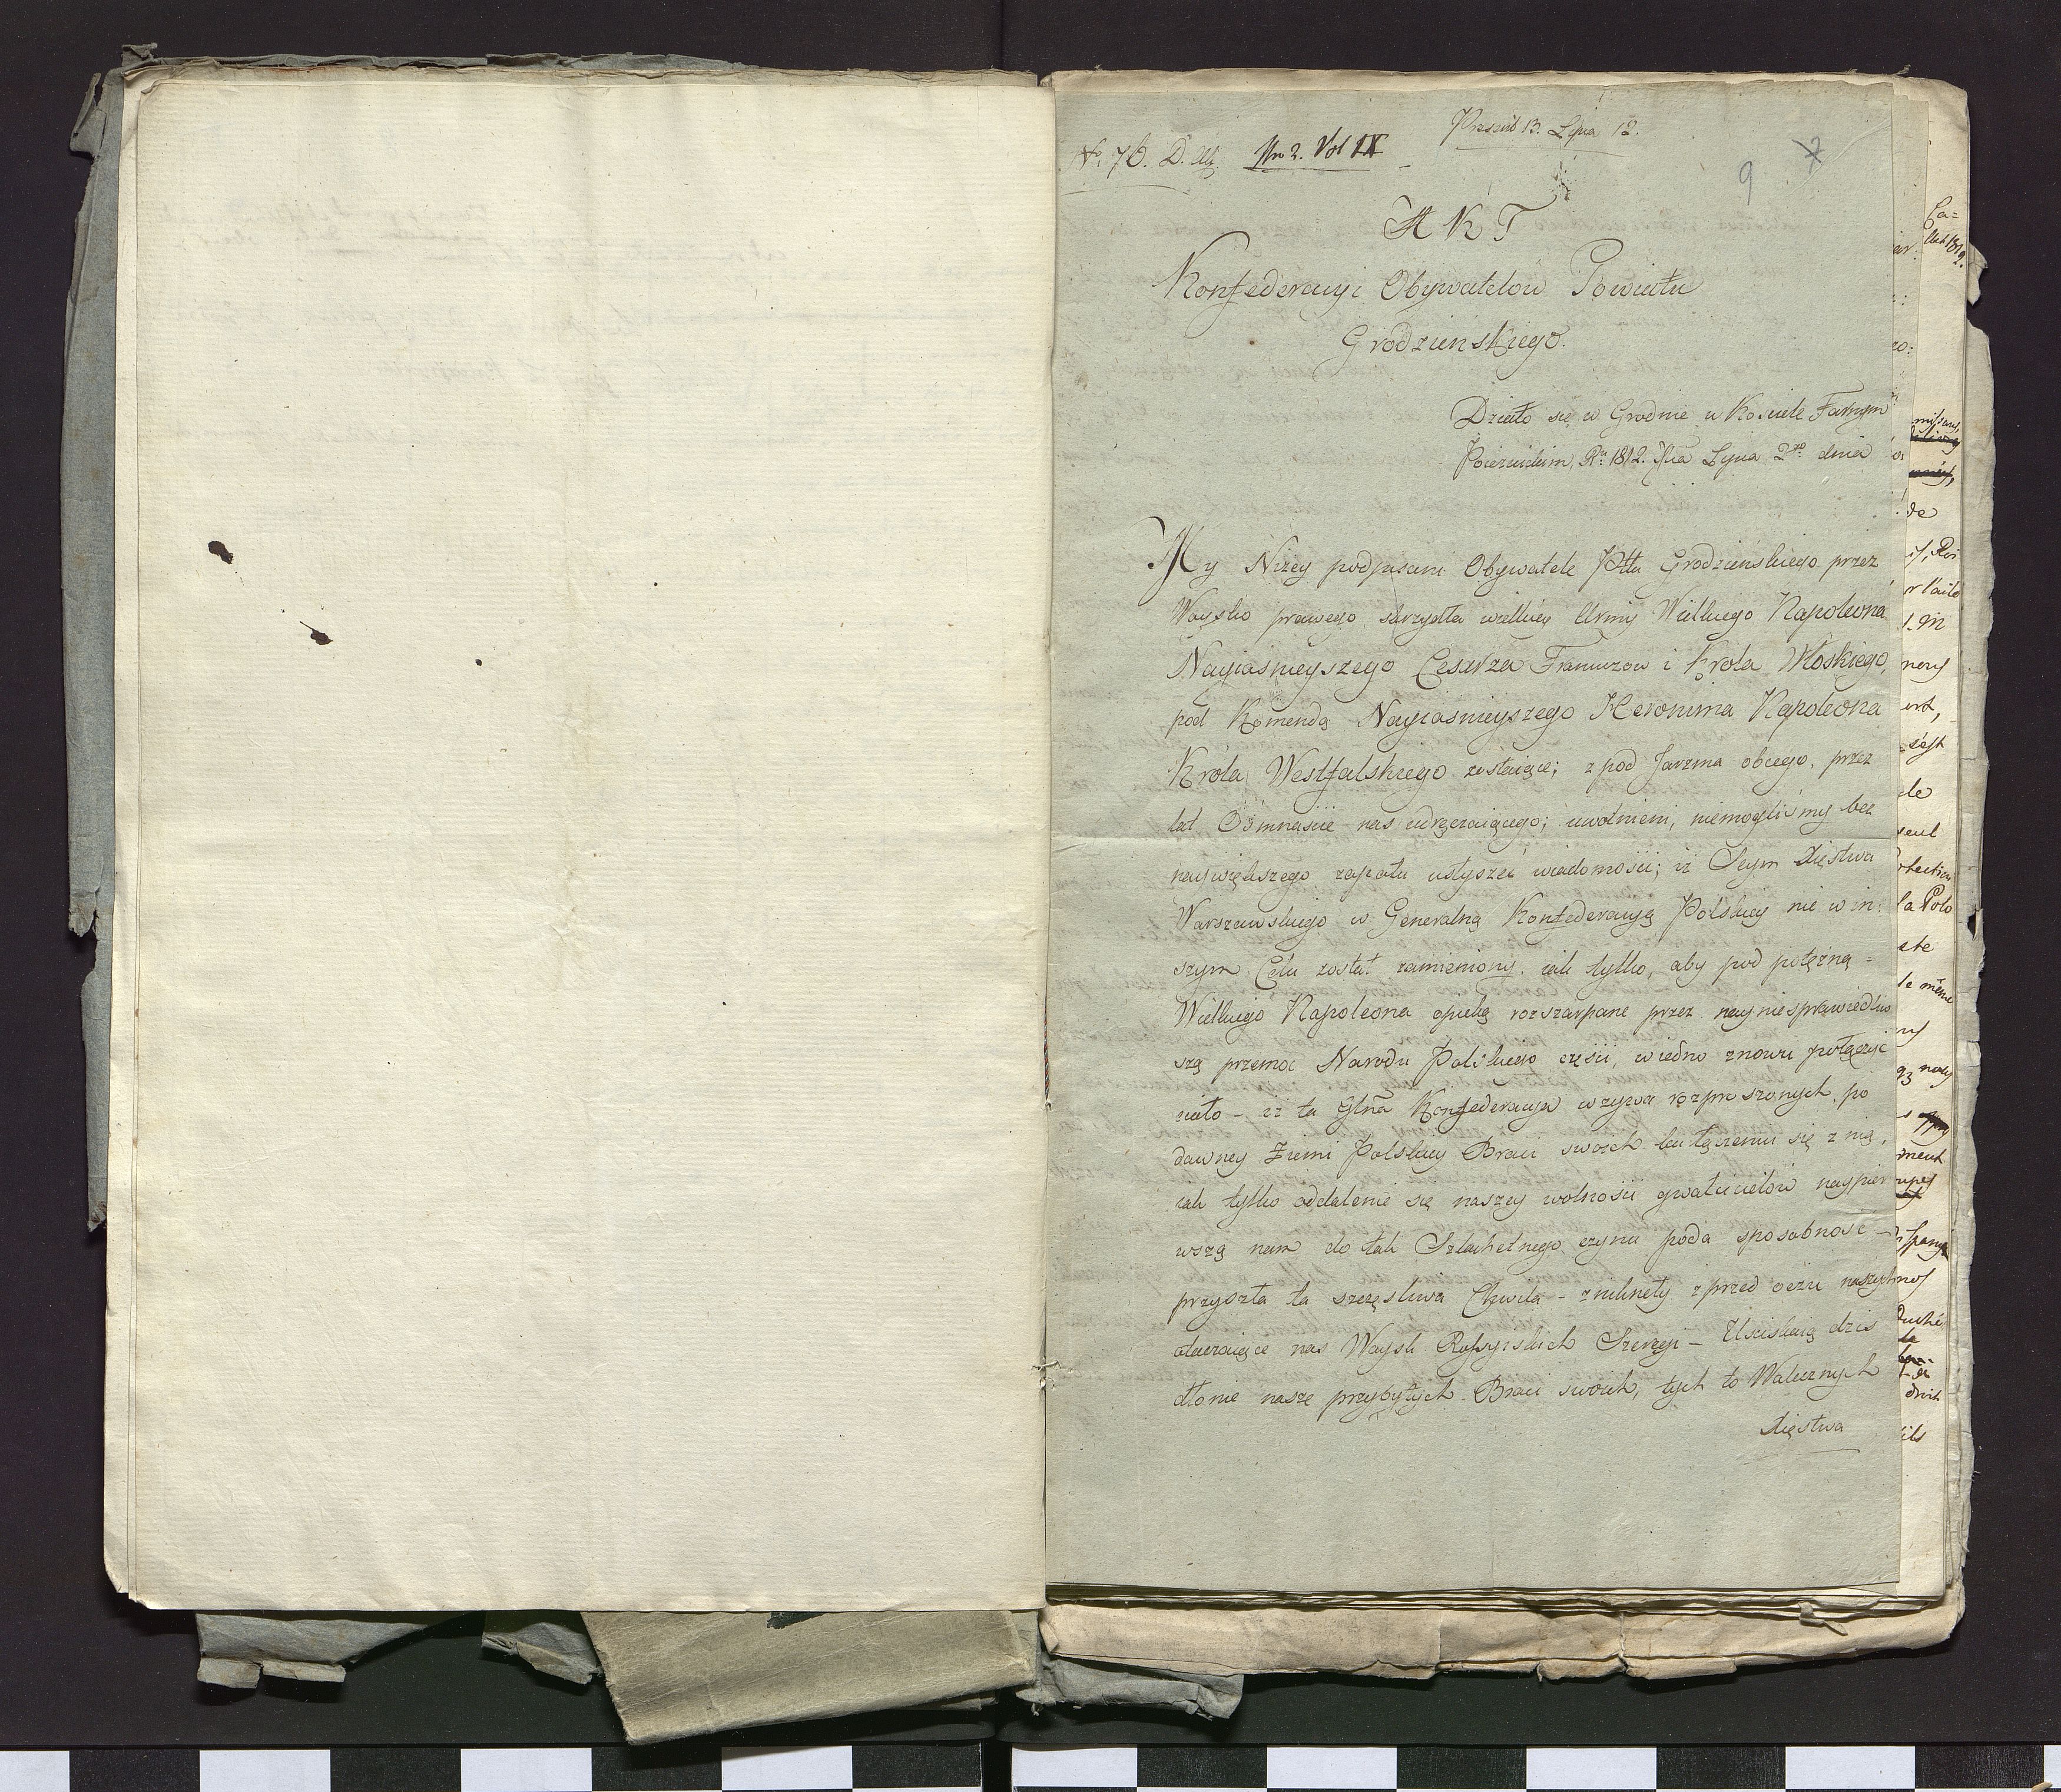 Present 13. Lipca 12.
No. 76. D. Nro 2. Vol IX
9 7
AKT
Konfederacyi Obywatelow Powiatu
Grodzienskiego.
Działo się w Grodnie w Kosciele Farnym
Poiezuickim, Ru 1812. Mca Lipca 2go dnia
My Niżey podpisani Obywatele Pttu Grodzieńskiego przez
Woysko prawego skrzydła wielkiey Armij Wielkiego Napoleona
Nayiasnieyszego Cesarza Francuzow i Krola Włoskiego,
pod Komendą Nayiasnieyszego Hieronima Napoleona
Króla Westfalskiego zostaiące; z pod Jarzma obcego, przez
lat Ośmnaście nas udręczaiącego; uwolnieni, niemogliśmy bez
naywiększego zapału usłyszeć wiadomości; iż Seym Xięstwa
Warszawskiego w Generalną Konfederacyą Polskiey nie w in:
szym Celu został zamieniony, iak tylko, aby pod potężną =
Wielkiego Napoleona opieką rozszarpane przez nayniesprawiedliw
szą przemoc Narodu Polskiego części, w iedno znowu połączyć
ciało - iż ta Glna Konfederacya wzywa rozproszonych, po
dawney Ziemi Polskiey Braci swoich ku łączeniu się z nią,
iak tylko oddalenie się naszey wolności gwałcicielów naypier
wszą nam do tak Szlachetnego czynu poda sposobność -
przyszła ta szczęsliwa Chwila - zniknęły z przed oczu naszych
otaczaiące nas Woysk Rossyiskich Szeregi - Uściskaią dziś
dłonie nasze przybyłych Braci swoich, tych to Walecznych
Xięstwa